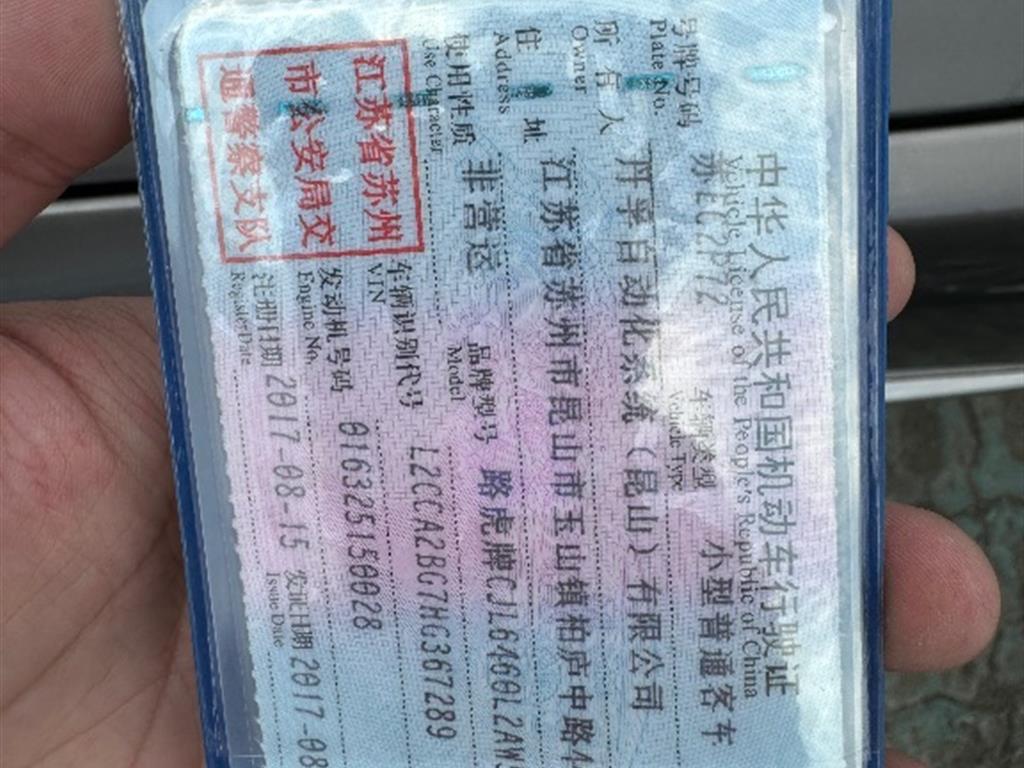 中华人民共和国机动车行驶证
Vehicle License of the People's Republic of China
号牌号码 苏EC2P72 车辆类型 小型普通客车
Plate No. Vehicle Type
所有人 丹孚自动化系统（昆山）有限公司
Owner
住址 江苏省苏州市昆山市玉山镇柏庐中路4
Address
使用性质 非营运 品牌型号 路虎牌CJL6460L2AW
Use Character Model
江苏省苏州
市公安局交
通警察支队
车辆识别代号 L2CCA2BG7HG367289
VIN
发动机号码 0163251S0028
Engine No.
注册日期 2017-08-15 发证日期 2017-08
Register Date Issue Date